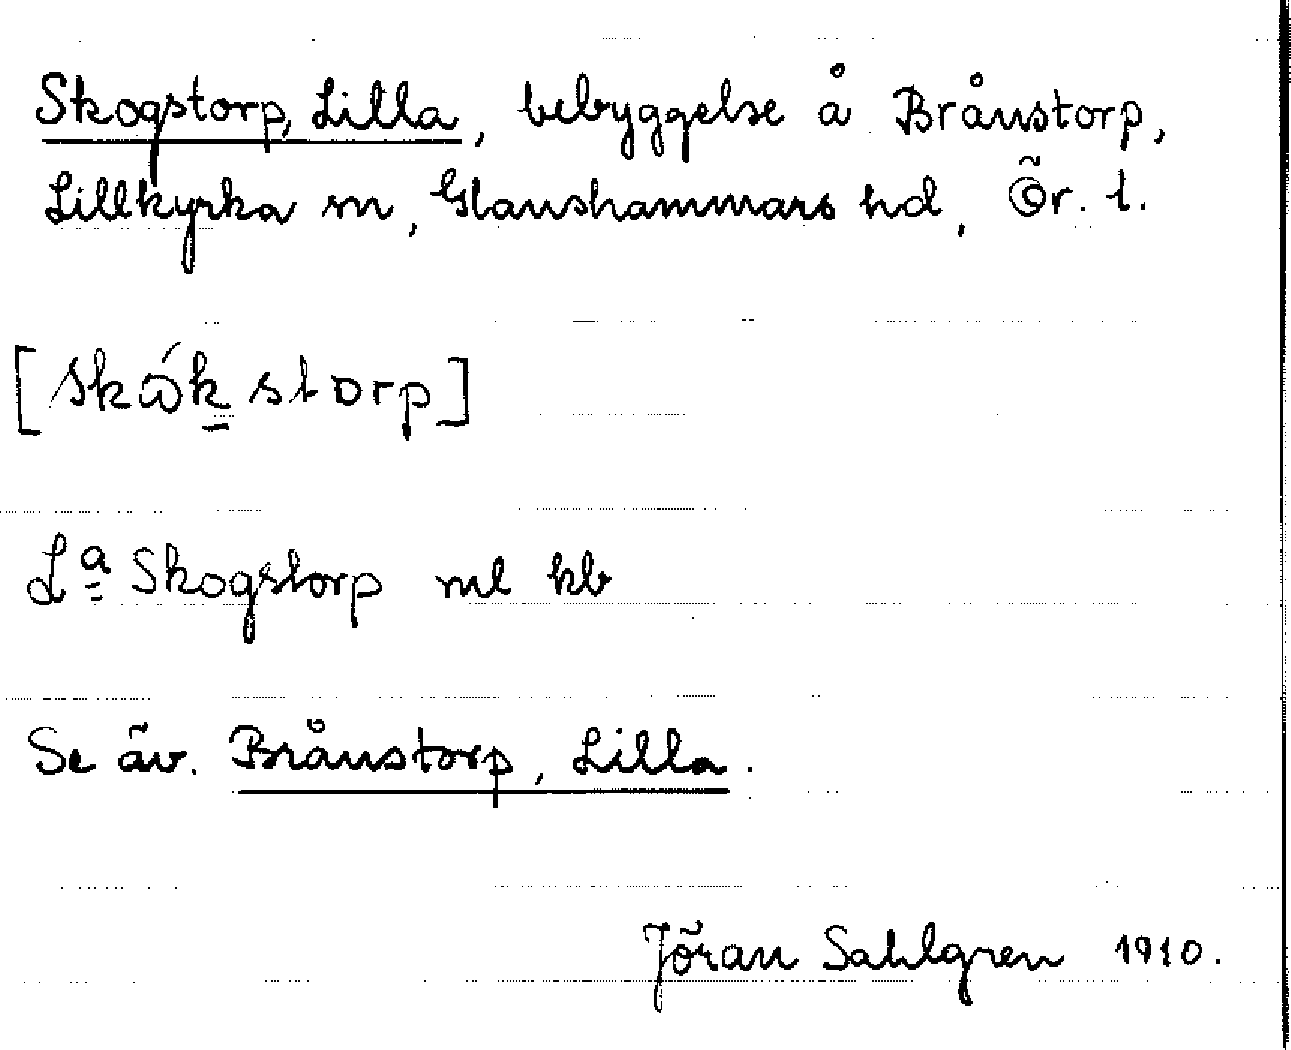 Skogstorp, Lilla, bebyggelse å Brånstorp,
Lillkyrka sn, Glanshammars hd, Ör. l.
[skɷ́k̲storp]
Lª Skogstorp ml kb
Se äv. Brånstorp, Lilla.
Jöran Sahlgren 1910.